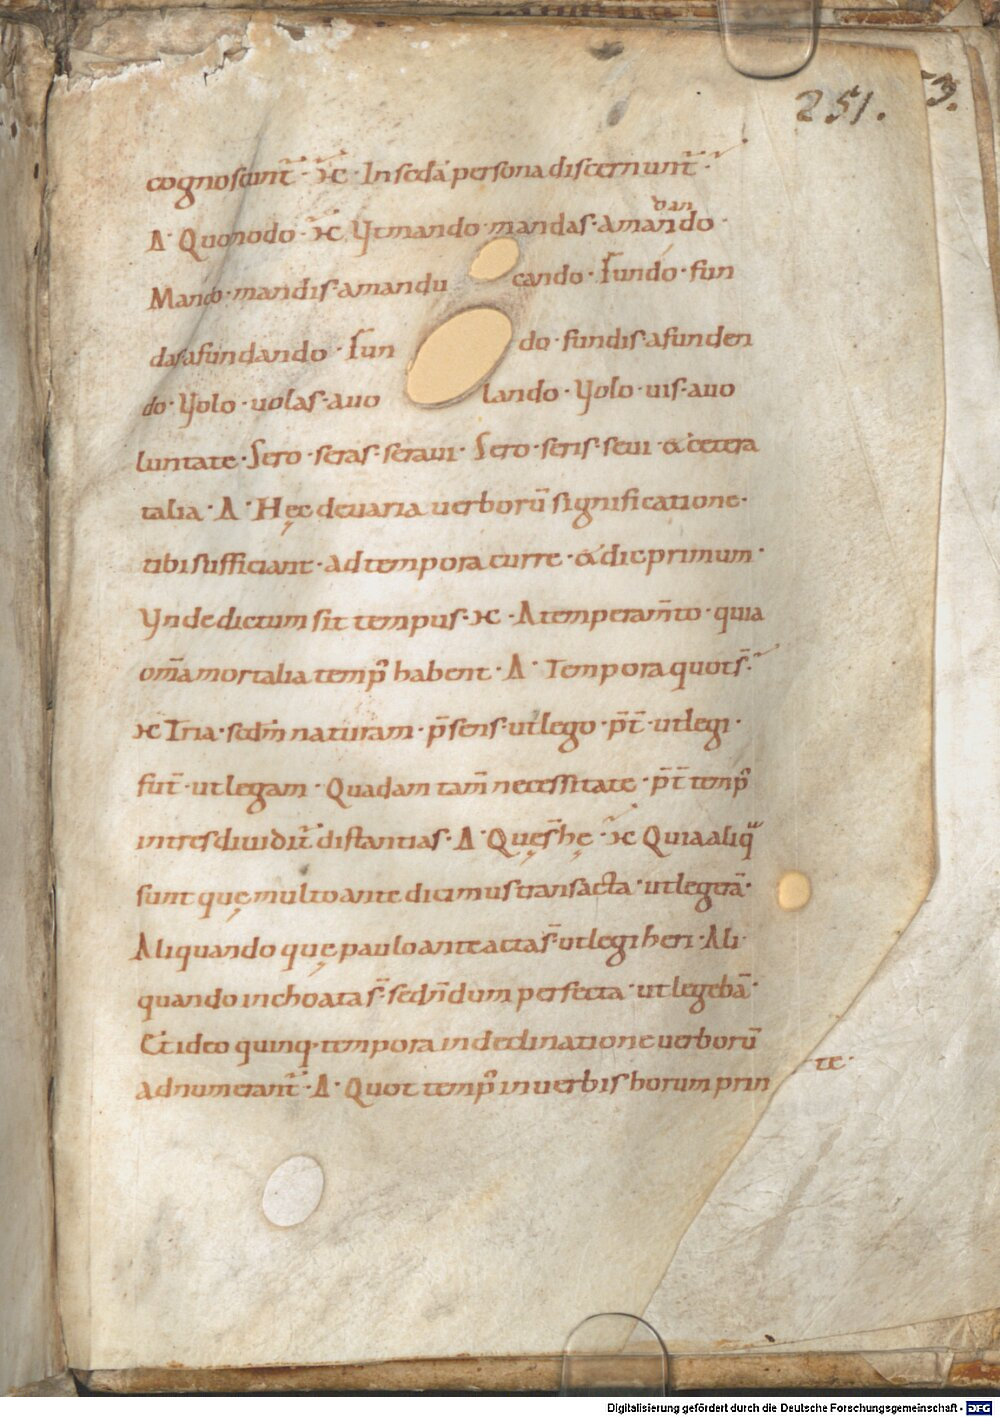 251.
3.
cognoscunt᷑ · ϰ · In scdā persona discernunt᷑ ·
Δ · Quomodo · ϰ Vt mando · mandas · a mando ·
dan
Mando · mandis · a manducando · Fundo · fun
das a fundando · Fundo · fundis a funden
do · Volo · uolas · a uolando · Volo · uis · a uo
luntate · Sero · seras · seraui · Sero · seris · seui · & cetera
talia · Δ · Hęc de uaria uerborū significatione ·
tibi sufficiant · ad tempora curre · & dic primum ·
Vnde dictum sit tempus · ϰ · A temperam̄to · quia
om̄a mortalia temp᷒ habent · Δ · Tempora quot s̄ ·
ϰ Tria · scdm̄ naturam · p̄sens · ut lego · p̄t̄ · ut legi ·
fut̄ · ut legam · Quadam tam̄ necessitate · p̄t̄ temp᷒
in tres diuidit᷑ distantias · Δ · Quę s̄ hę · ϰ Quia aliq̄
sunt quę multo ante dicimus transacta · ut legerā ·
Aliquando quę paulo ante acta s̄ · ut legi heri · Ali
quando inchoata s̄ · sed n̄dum perfecta · ut legebā ·
Et ideo quinq · tempora in declinatione uerborū
adnumerant᷑ · Δ · Quot temp᷒ in uerbis horum prin
te ·
Digitalisierung gefördert durch die Deutsche Forschungsgemeinschaft - DFG